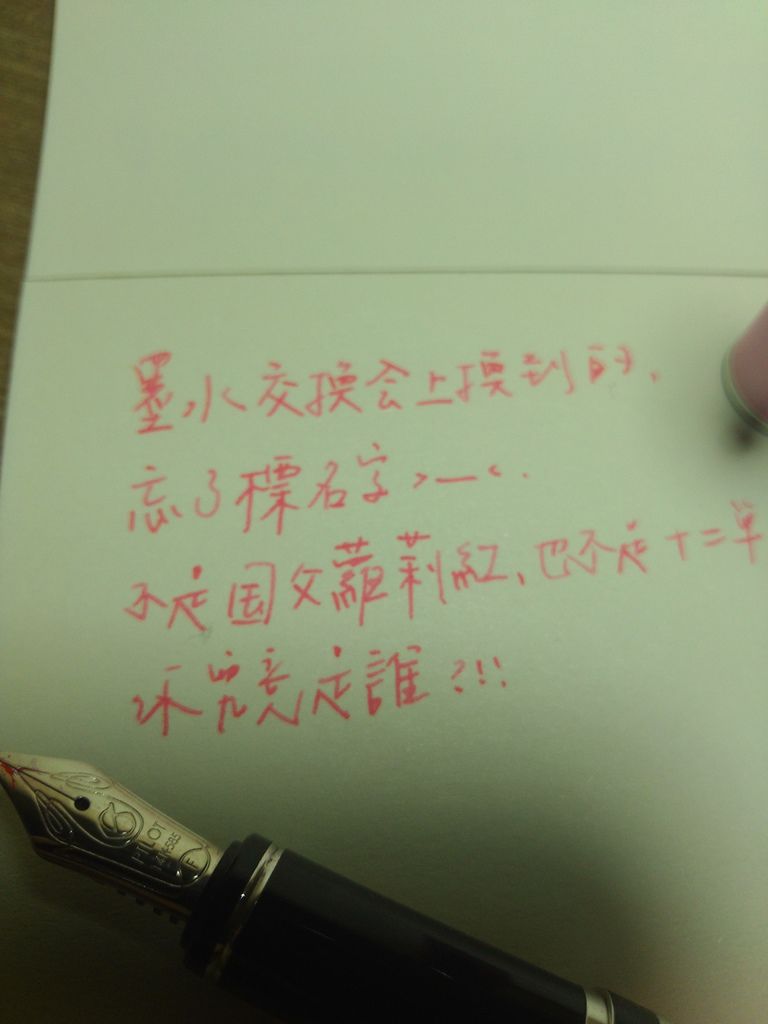 墨水交換会上換到的,
忘了標名字>_<.
不是国父蘿莉紅,也不是十二單
你究竟是誰?!!!
PILOT
14K-585
F